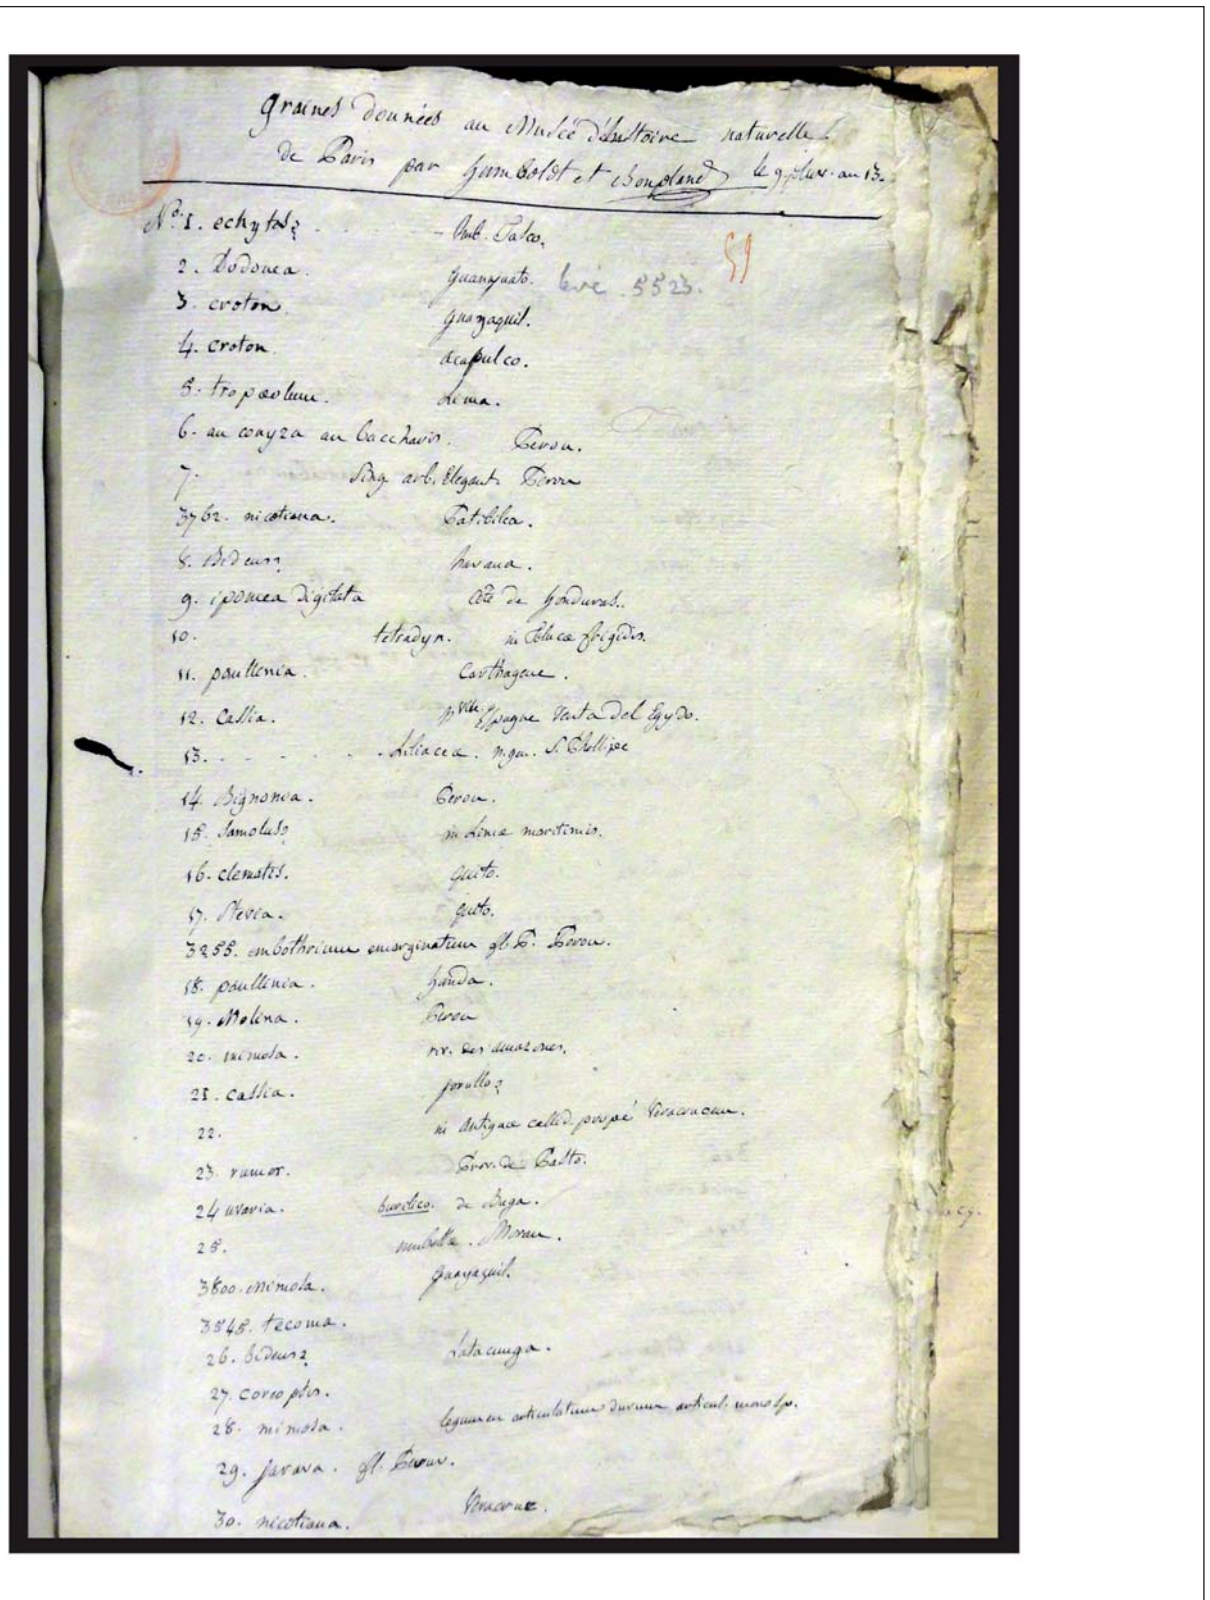 graines données au Musée d'histoire naturelle
de Paris par humboldt et Bonpland le 9 pluv. an 13.
59
N.º 1. echytes?
2. Dodonea. Guanajuato. 5523.
3. croton. guayaquil.
4. croton. acapulco.
5. tropæolum. Lima.
6. an conyza an bacchavis. Perou.
7. Sing arb. Elegant. Perou
3762. nicotiana. Pativilca.
8. Bidens? havana.
9. ipomea digitata Côte de honduras.
10. tetradyn. in Tolucæ frigidis.
11. paullinia. Carthagene.
12. Cassia. Nvlle Espagne Venta del Egydo.
13. - - - Liliacea. n. gen. S. Phellipe
14. Bignonia. Perou.
15. Samolus? in Limæ maritimis.
16. clematis. quito.
17. Stevia. quito.
3255. embothrium emarginatum fl. P. Perou.
18. paullinia. honda.
19. Molina. Perou
20. mimosa. riv. des amazones.
21. cassia. jorullo?
22. in Antiguæ callid. propé Veracrucem.
23. rumex. Prov. de Pasto.
24 uvaria. burilico. de Buga.
25. umbella. Moran.
3800. Mimosa. guayaquil.
3545. tecoma.
26. bidens? Latacunga.
27. coreopsis.
28. mimosa. legumen articulatum durum articul. monosp.
29. jarava. fl. Peruv.
30. nicotiana. Veracruz.